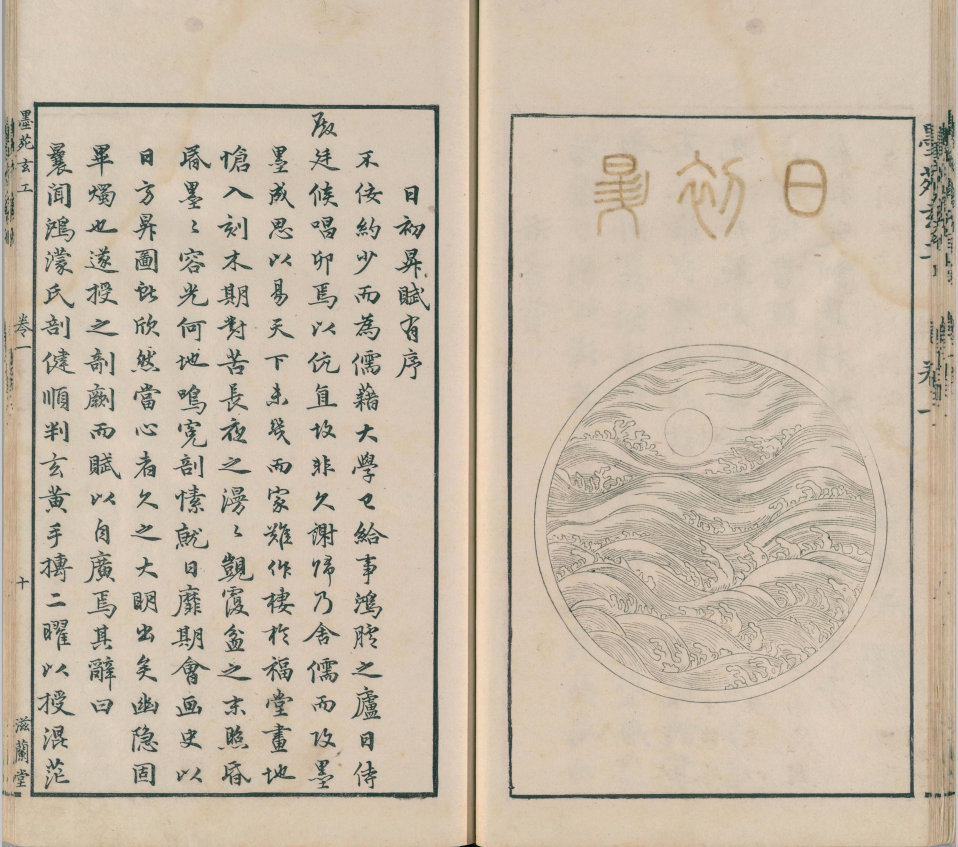 日初昇
日初昇賦有序
不佞約少而為儒藉大學已給事鴻臚之廬日侍
殿廷候唱卯焉以伉直故非久謝歸乃舍儒而攻墨
墨成思以易天下未幾而家難作棲於福堂畫地
愴入刻木期對苦長夜之漫〻覩覆盆之末照昏
昏墨〻容光何地鳴寃剖愫就日靡期會画史以
日方昇圖貺欣然當心者久之大明出矣幽隐固
畢燭也遂授之剞劂而賦以自廣焉其辭曰
曩聞鴻濛氏剖健順判玄黄手摶二曜以授混茫
墨苑玄工 卷一 十 滋蘭堂